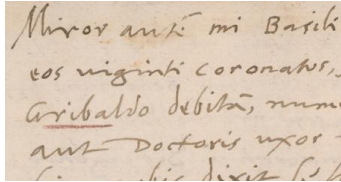 Miror autē mi Basili
eos viginti coronatos,
Gribaldo debitā, num
aut Doctoris uxor
dixit